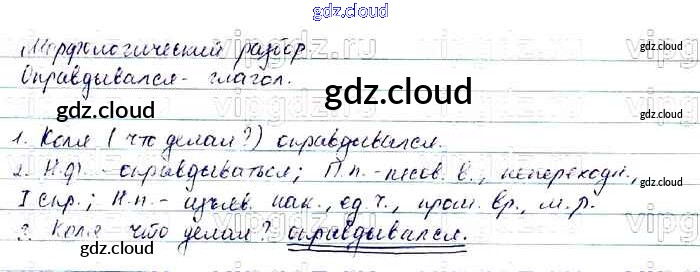 gdz.cloud
Морфологический разбор.
Оправдывался - глагол.
gdz.cloud
gdz.cloud
gdz.cloud
gdz.cloud
1. Коля (что делал?) оправдывался.
2. Н.ф. - оправдываться; П.п. - несов. в., непереходн.,
I спр.; Н.п. - изъяв. нак., ед. ч., прош. вр., м. р.
gdz.cloud
3. Коля что делал? оправдывался.
gdz.cloud
gdz.cloud